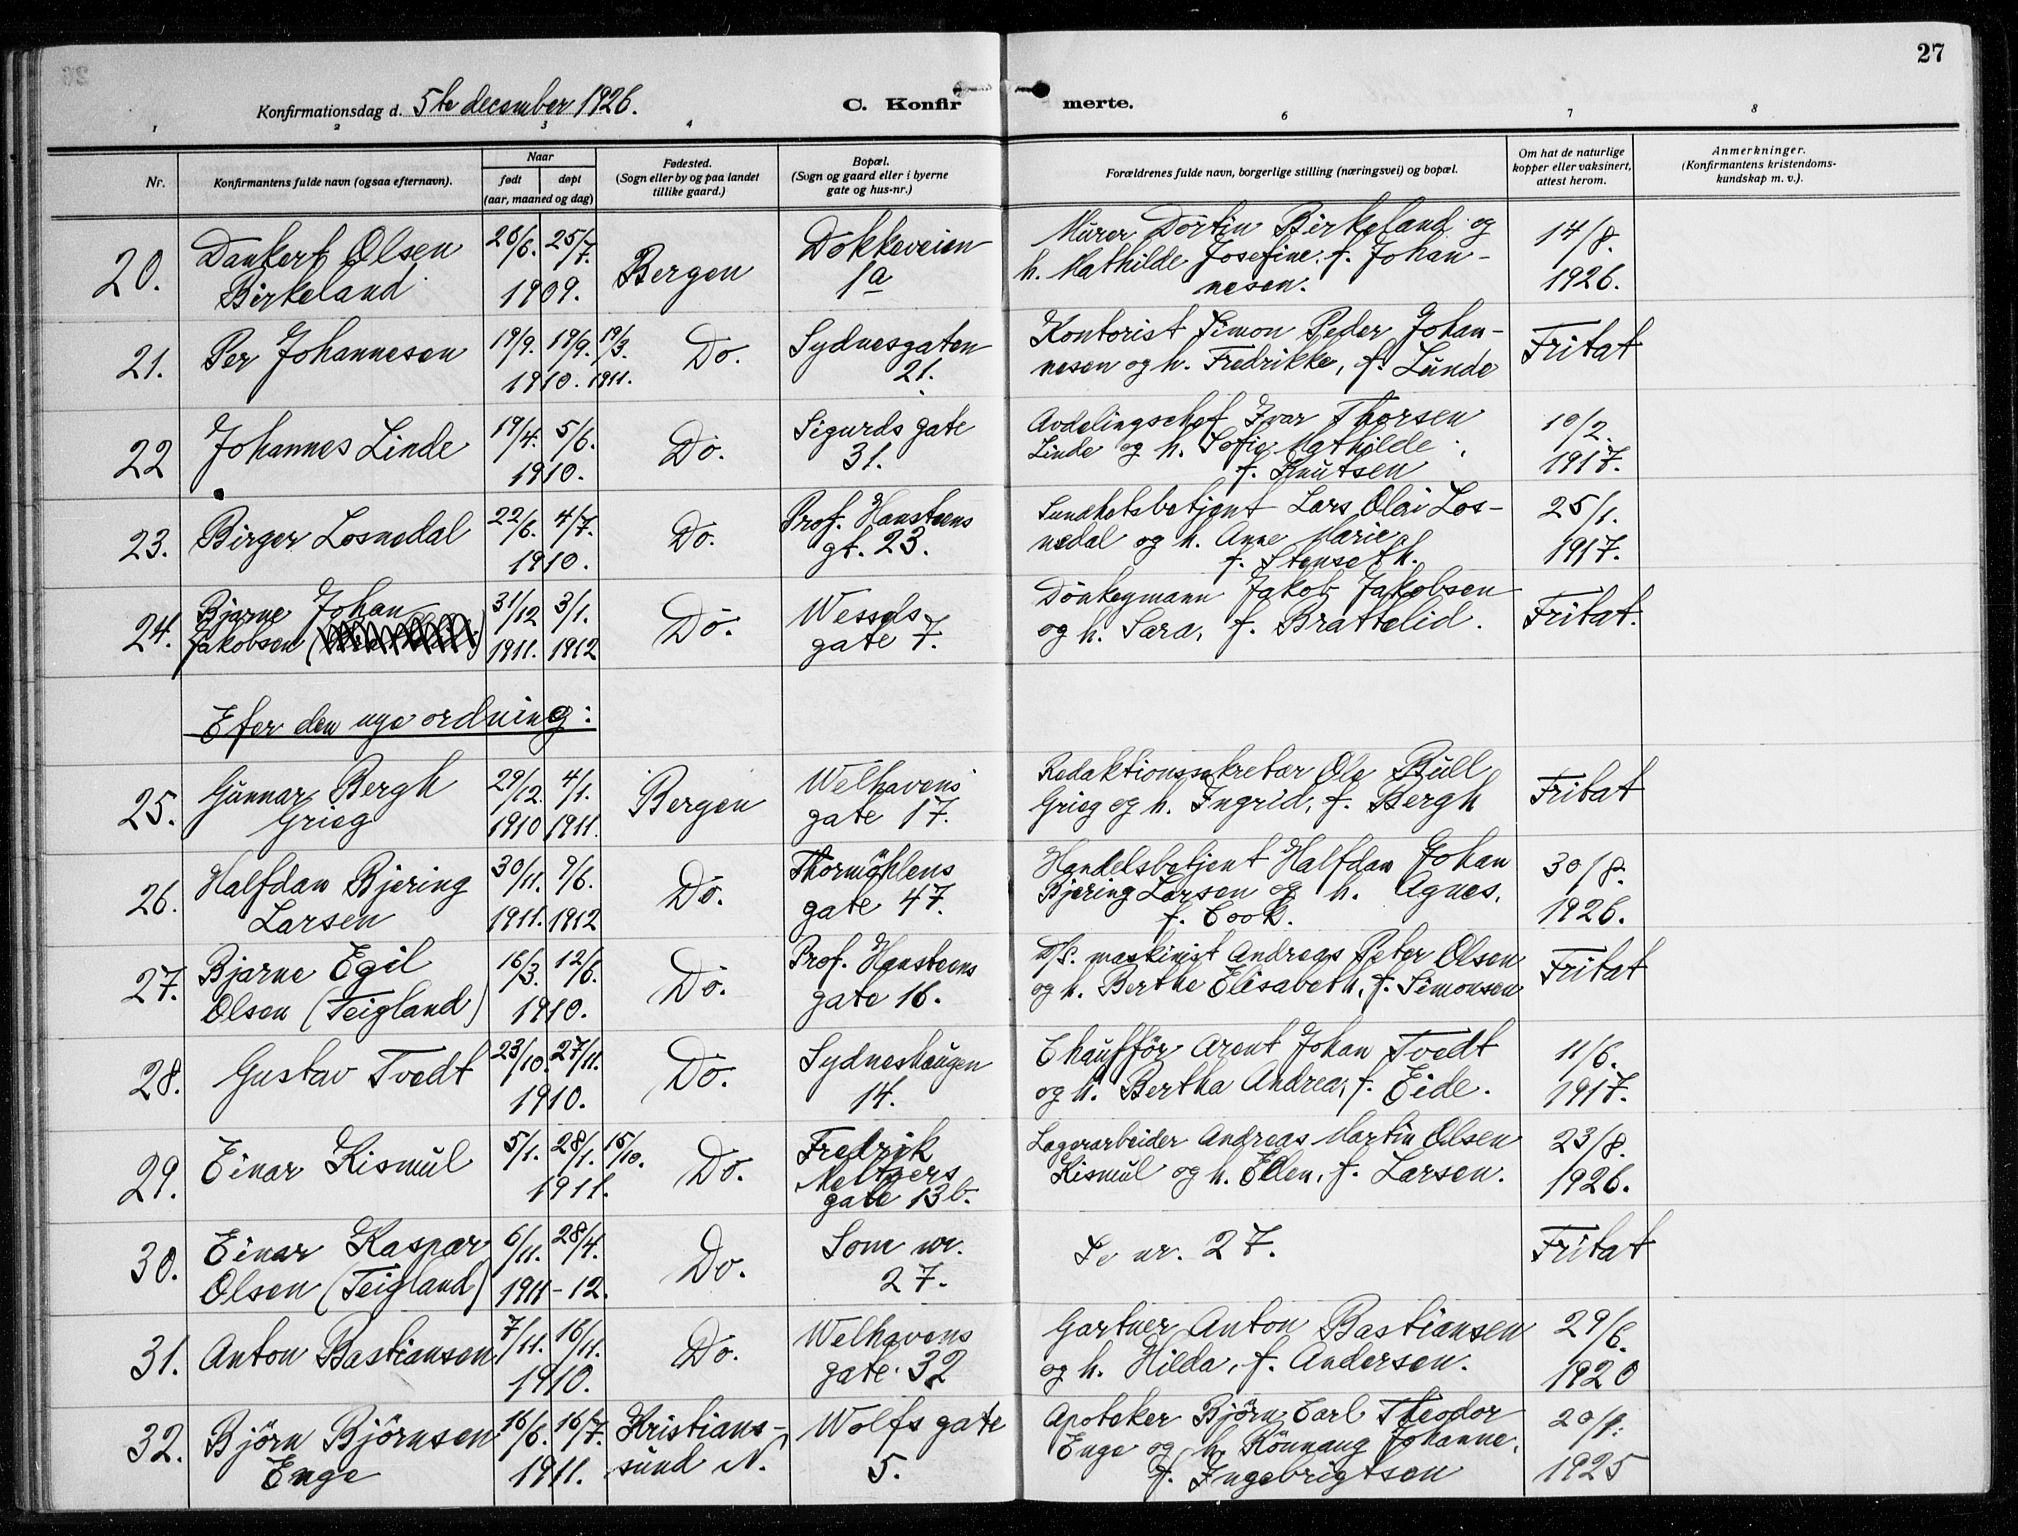 27
Konfirmationsdag d. 5te december 1926.
C. Konfirmerte.
1 2 3 4 6 7 8
Nr.
Konfirmantens fulde navn (ogsaa efternavn).
Naar
født døpt
(aar, maaned og dag)
Fødested.
(Sogn eller by og paa landet
tillike gaard.)
Bopæl.
(Sogn og gaard eller i byerne
gate og hus-nr.)
Forældrenes fulde navn, borgerlige stilling (næringsvei) og bopæl.
Om hat de naturlige
kopper eller vaksinert,
attest herom.
Anmerkninger.
(Konfirmantens kristendoms-
kundskap m. v.).
20. Dankert Olsen 26/6. 25/7. Bergen Dokkeveien Murer Dortin Birkeland og 14/8.
Birkeland 1909. 1a h. Mathilde Josefine, f. Johan- 1926.
nesen.
21. Per Johannesen 19/9. 19/9. 19/3. Do. Sydnesgaten Kontorist Simon Peder Johan- Fritat
1910. 1911. 21. nesen og h. Fredrikke, f. Lunde
22 Johannes Linde 19/4. 5/6. Do. Sigurds gate Avdelingschef Ivar Thorsen 10/2.
1910. 31. Linde og h. Sofie Mathilde 1917.
f. Knutsen
23. Birger Losnedal 22/6. 4/7. Do. Prof. Hansteens Sundhetsbetjent Lars Olai Los- 25/1.
1910. gt. 23. nedal og h. Anne Marie, 1917.
f. Stenseth.
24. Bjarne Johan 31/12 3/1. Do. Wessels- Dönkeymann Jakob Jakobsen Fritat.
Jakobsen 1911. 1912 gate 7. og h. Sara, f. Brattelid.
Efer den nye ordning:
25. Gunnar Bergh 29/12. 4/1. Bergen Welhavens Redaktionssekretær Ole Bull Fritat
Grieg 1910 1911. gate 17. Grieg og h. Ingrid, f. Bergh
26. Halfdan Bjering 30/11. 9/6. Do. Thormöhlens Handelsbetjent Halfdan Johan 30/8.
Larsen 1911. 1912 gate 47. Bjering Larsen og h. Agnes, 1926.
f. Cook.
27. Bjarne Egil 16/3. 12/6. Do. Prof. Hansteens D/S. maskinist Andreas Peter Olsen Fritat
Olsen (Teigland) 1910. gate 16. og h. Berthe Elisabeth, f. Simonsen
28. Gustav Tvedt 23/10. 27/11. Do. Sydneshaugen Chaufför Arent Johan Tvedt 11/6.
1910. 14. og h. Bertha Andrea, f. Eide. 1917.
29. Einar Kismul 5/1. 28/1. 15/10. Do. Fredrik Lagerarbeider Andreas Martin Olsen 23/8.
1911. Meltzers Kismul og h. Ellen, f. Larsen. 1926.
gate 13b.
30. Einar Kaspar 6/11. 28/4. Do. Som nr. Se nr. 27. Fritat
Olsen (Teigland) 1911-12. 27.
31. Anton Bastiansen 7/11. 16/11. Do. Welhavens Gartner Anton Bastiansen 29/6.
1910. gate 32 og h. Hilda, f. Andersen. 1920
32. Björn Björnsen 16/6. 16/7. Kristians- Wolfs gate Apoteker Björn Carl Theodor
Enge 1911. sund N. 5. Enge og h. Rönnaug Johanne, 1925
f. Ingebrigtsen